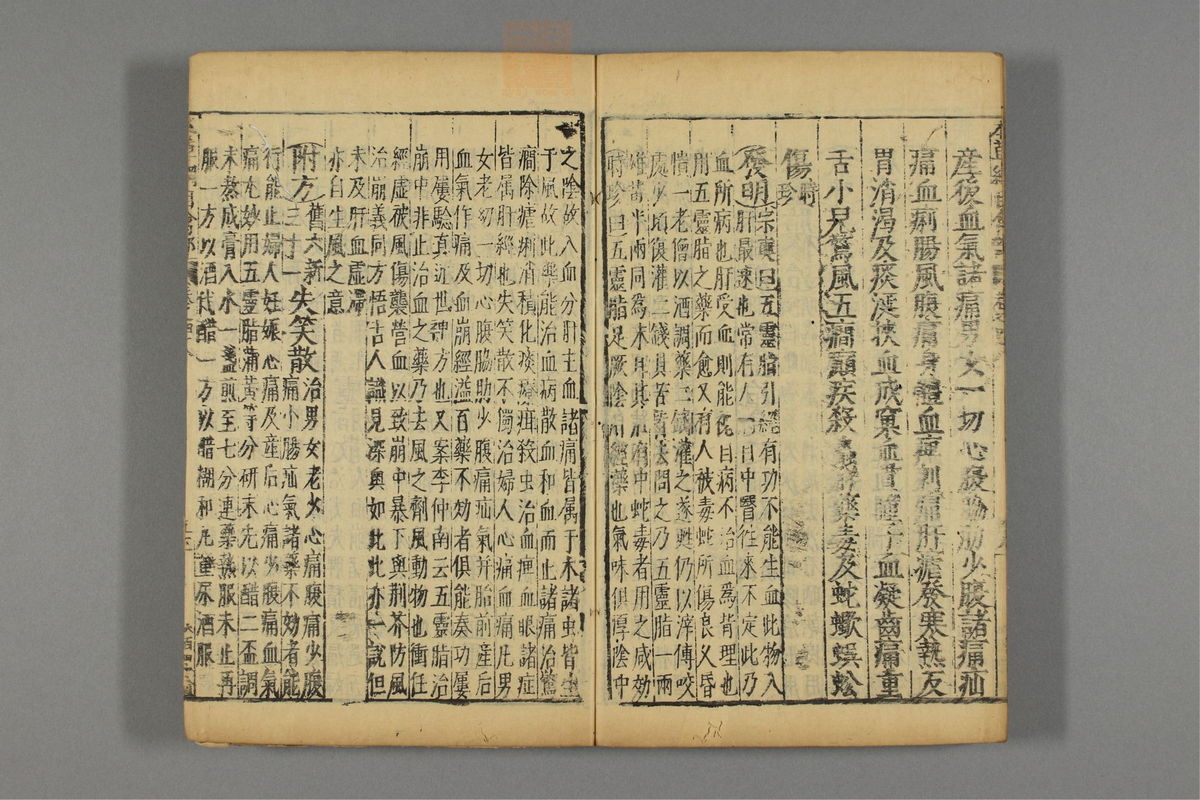 產後血氣諸痛男女一切心腹脇肋少腹諸痛疝
痛血痢腸風腹痛身體血痺刺痛肝瘧發寒熱反
胃消渴及痰涎挾血成窠血貫瞳子血凝齒痛重
舌小兒驚風五癇癲疾殺蟲解藥毒及蛇蠍蜈蚣
傷時珍
發明宗奭曰五靈脂引經有功不能生血此物入
肝最速也常有人病目中瞖往來不定此乃
血所病也肝受血則能視目病不治血爲背理也
用五靈脂之藥而愈又有人被毒蛇所傷良久昏
憒一老僧以酒調藥二錢灌之遂甦仍以滓傅咬
處少頃復灌二錢其苦皆去問之乃五靈脂一兩
雄黃半兩同為末耳其後有中蛇毒者用之咸効
時珍曰五靈脂足厥陰肝經藥也氣味俱厚陰中
之陰故入血分肝主血諸痛皆属于木諸虫皆生
于風故此藥能治血病散血和血而止諸痛治驚
癇除瘧痢消積化痰療疳殺虫治血痺血眼諸症
皆属肝經也失笑散不獨治婦人心痛血痛凡男
女老幼一切心腹脇肋少腹痛疝氣并胎前産后
血氣作痛及血崩經溢百藥不効者俱能奏功屢
用屢驗真近世神方也又案李仲南云五靈脂治
崩中非止治血之藥乃去風之劑風動物也衝任
經虛被風傷襲營血以致崩中暴下與荆芥防風
治崩義同方悟古人識見深奧如此此亦一說但
未及肝血虛滯
亦自生風之意
附方舊六新三十一失笑散治男女老少心痛腹痛少腹
痛小腸疝氣諸藥不効者能
行能止婦人妊娠心痛及産后心痛少腹痛血氣
痛尤妙用五靈脂蒲黃等分研末先以醋二盃調
末熬成膏入水一盞煎至七分連藥熱服未止再
服一方以酒代醋一方以醋糊和丸童尿酒服